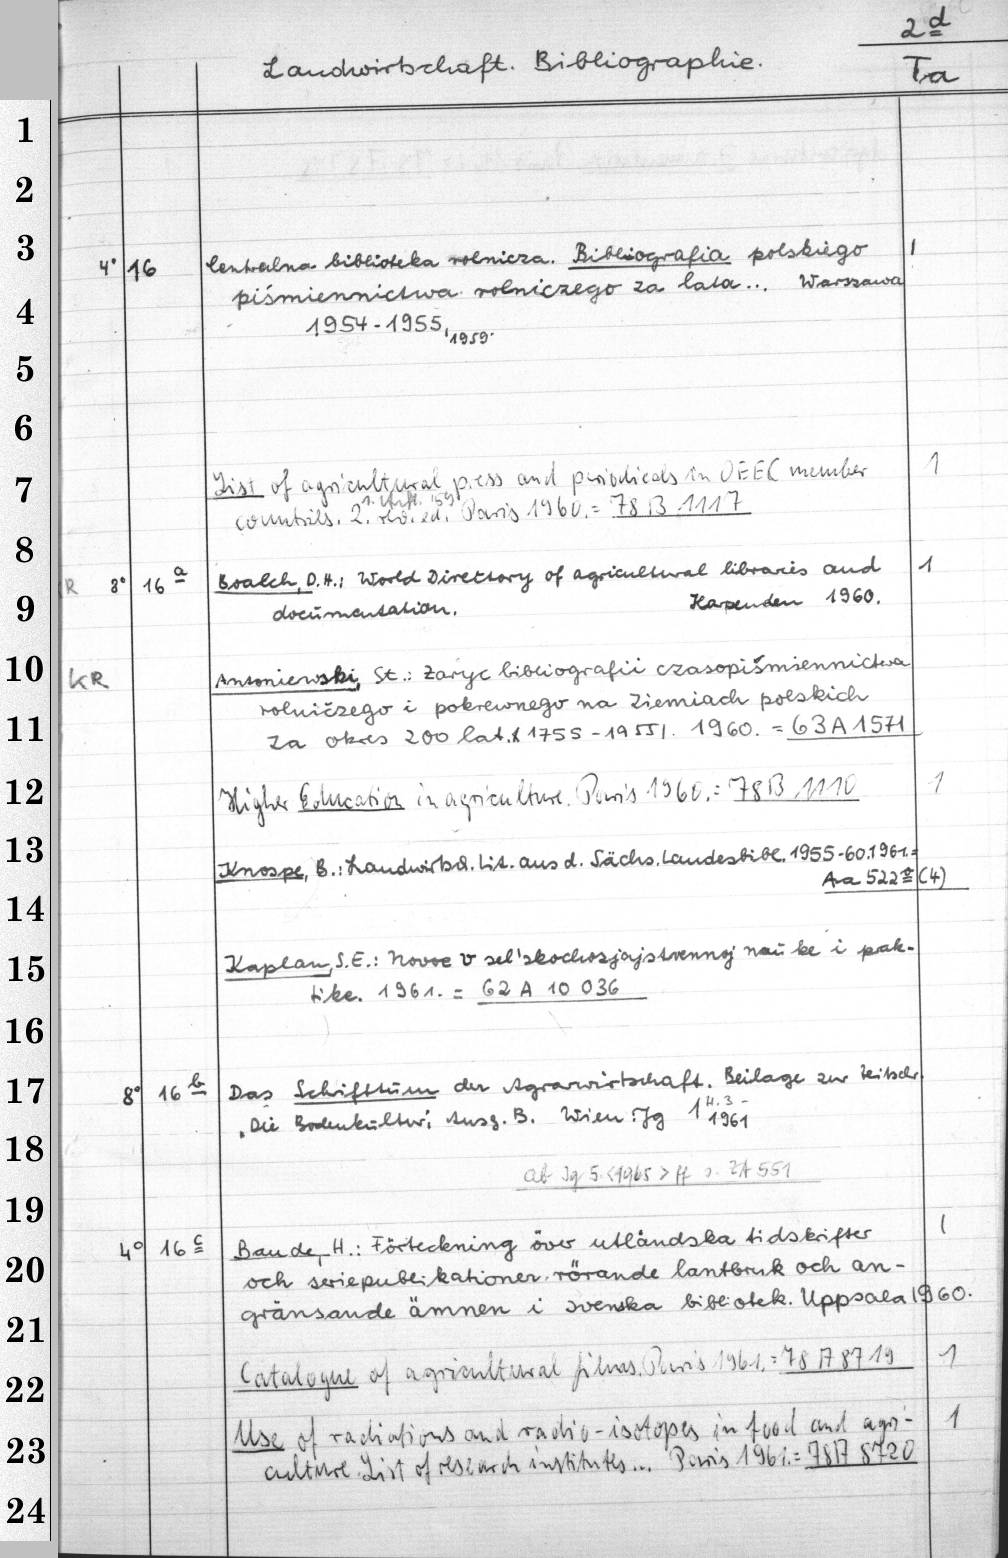 2d
Landwirtschaft. Bibliographie.
Ta
1
2
3
4° 16 Centralna biblioteka rolnicza. Bibliografia polskiego 1
piśmiennictwa rolniczego za lata... Warszawa
4
1954-1955, 1959.
5
6
7
List of agricultural press and periodicals in OEEC member 1
countries. 2. rev. ed. Paris 1960. = 78 B 1117
8
R 8° 16 a Boalch, D.H.: World Directory of agricultural libraries and 1
9
documentation. Harpenden 1960.
10
KR Antoniewski, St.: Zaryc bibliografii czasopiśmiennictwa
rolniczego i pokrewnego na ziemiach polskich
11
za okres 200 lat. 1755-1955/. 1960. = 63 A 1571
12
Higher Education in agriculture. Paris 1960. = 78 B 1110 1
13
Knospe, B.: Landwirtsch. Lit. aus d. Sächs. Landesbibl. 1955-60. 1961. =
Aa 522 e (4)
14
15
Kaplan, S.E.: Novoe v sel'skochozjajstvennoj nauke i prak-
tike. 1961. = 62 A 10 036
16
17
8° 16 b Das Schrifttum der Agrarwirtschaft. Beilage zur Zeitschr.
"Die Bodenkultur", Ausg. B. Wien: Jg 1 H. 3 - 1961
18
ab Jg 5. <1965> ff s. ZA 551
19
4° 16 c Baude, H.: Förteckning över utländska tidskrifter 1
20
och seriepublikationer rörande lantbruk och an-
gränsande ämnen i svenska bibliotek. Uppsala 1960.
21
Catalogue of agricultural films. Paris 1961. = 78 B 8719 1
22
Use of radiations and radio-isotopes in food and agri- 1
23
culture. List of research institutes... Paris 1961. = 78 B 8720
24